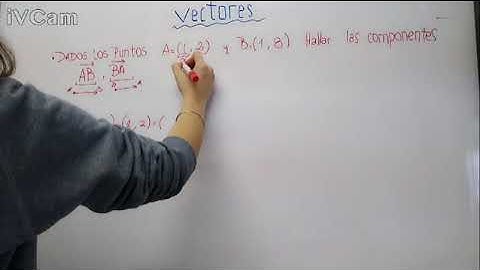 iVCam
Vectores
• DADOS LOS PUNTOS A=( , 2) y B=(1, 8) Hallar las componentes
AB , BA
, 2) = (